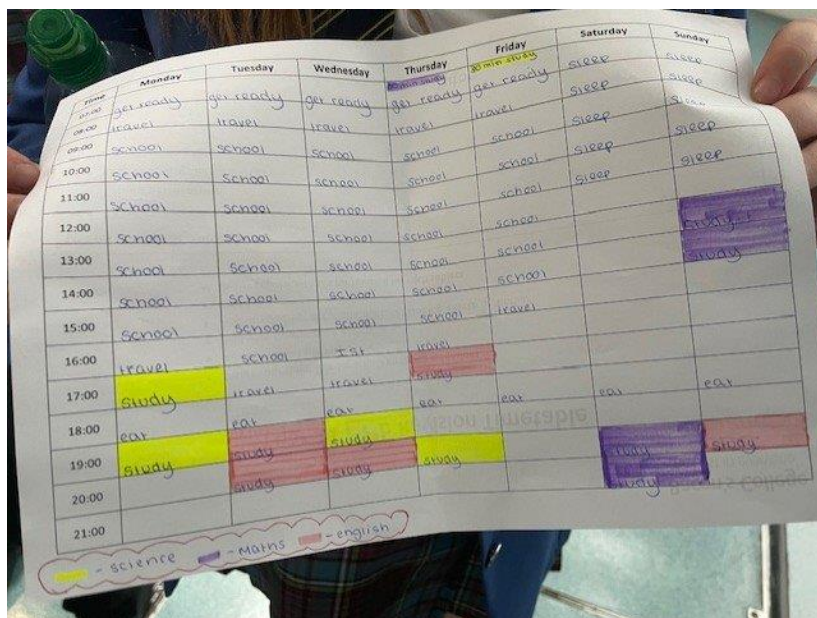 Time Monday Tuesday Wednesday Thursday Friday Saturday Sunday
30 min study 30 min study
07:00 get ready get ready get ready get ready get ready sleep sleep
08:00 travel travel travel travel travel sleep sleep
09:00 school school school school school sleep sleep
10:00 school school school school school sleep sleep
11:00 school school school school school sleep sleep
12:00 school school school school school study
13:00 school school school school school study
14:00 school school school school school
15:00 school school school school travel
16:00 travel school travel
17:00 study travel travel study
18:00 eat eat eat eat eat eat eat
19:00 study study study study study
20:00 study study study study
21:00
- science - Maths - english